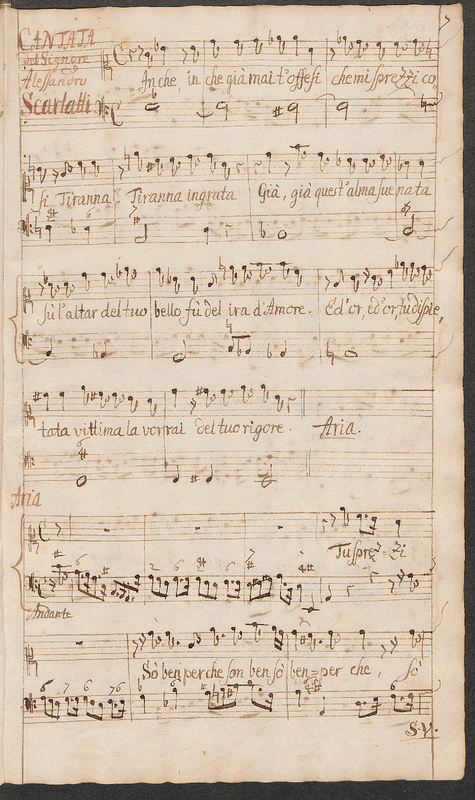 CANTATA
del Signore
Alessandro
Scarlatti
In che, in che già mai t'offesi che mi sprezzi co
si Tiranna? Tiranna ingrata Già, già quest'alma sue nata
sù l'altar del tuo bello fù del ira d'Amore. Ed'or, ed'or, tu dispie,
tata vittima la vorrai del tuo rigore. Aria.
Aria
Tu sprez=zi
Andante
Sò ben perche son ben sò ben=per che, sò
S.V.